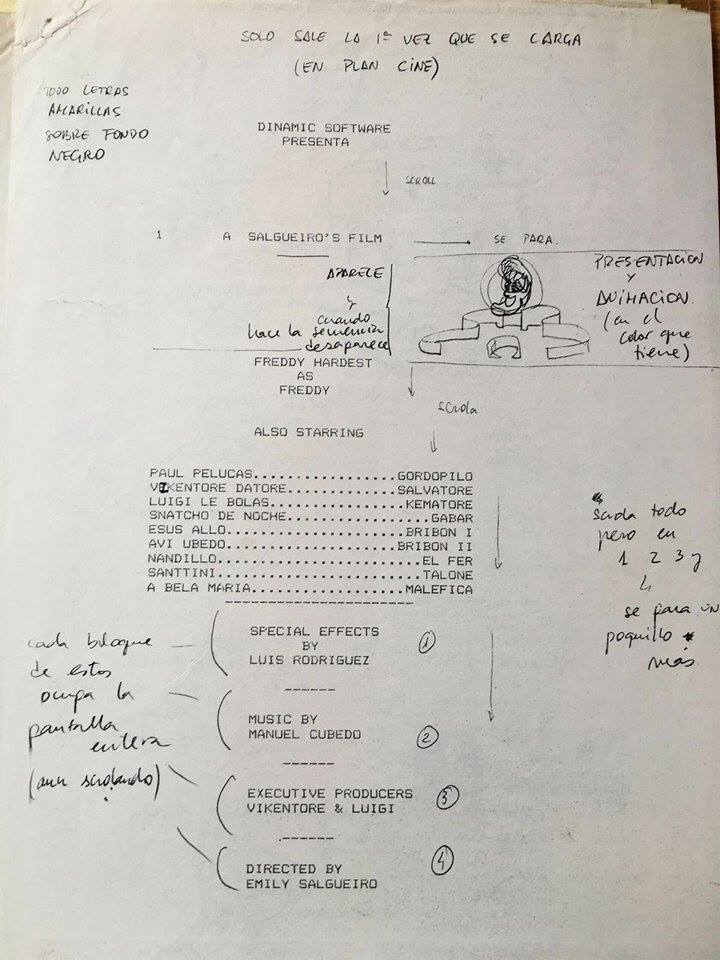 SOLO SALE LA 1ª VEZ QUE SE CARGA
(EN PLAN CINE)
TODO LETRAS
AMARILLAS
SOBRE FONDO
NEGRO
DINAMIC SOFTWARE
PRESENTA
SCROLL
1 A SALGUEIRO'S FILM SE PARA.
APARECE
y
cuando
hace la
desaparece
PRESENTACION
Y
ANIMACION.
(en el
color que
tiene)
FREDDY HARDEST
AS
FREDDY
scrola
ALSO STARRING
PAUL PELUCAS.................GORDOPILO
VIKENTORE DATORE.............SALVATORE
LUIGI LE BOLAS................KEMATORE
SNATCHO DE NOCHE.................GABAR
ESUS ALLO.....................BRIBON I
AVI UBEDO....................BRIBON II
NANDILLO........................EL FER
SANTTINI........................TALONE
A BELA MARIA..................MALEFICA
------------------------
scrola todo
pero en
1 2 3 y
4
se para un
poquillo
más
SPECIAL EFFECTS
BY
LUIS RODRIGUEZ
1
------
MUSIC BY
MANUEL CUBEDO
2
------
EXECUTIVE PRODUCERS
VIKENTORE & LUIGI
3
------
DIRECTED BY
EMILY SALGUEIRO
4
cada bloque
de estos
ocupa la
pantalla
entera
(aun scrolando)